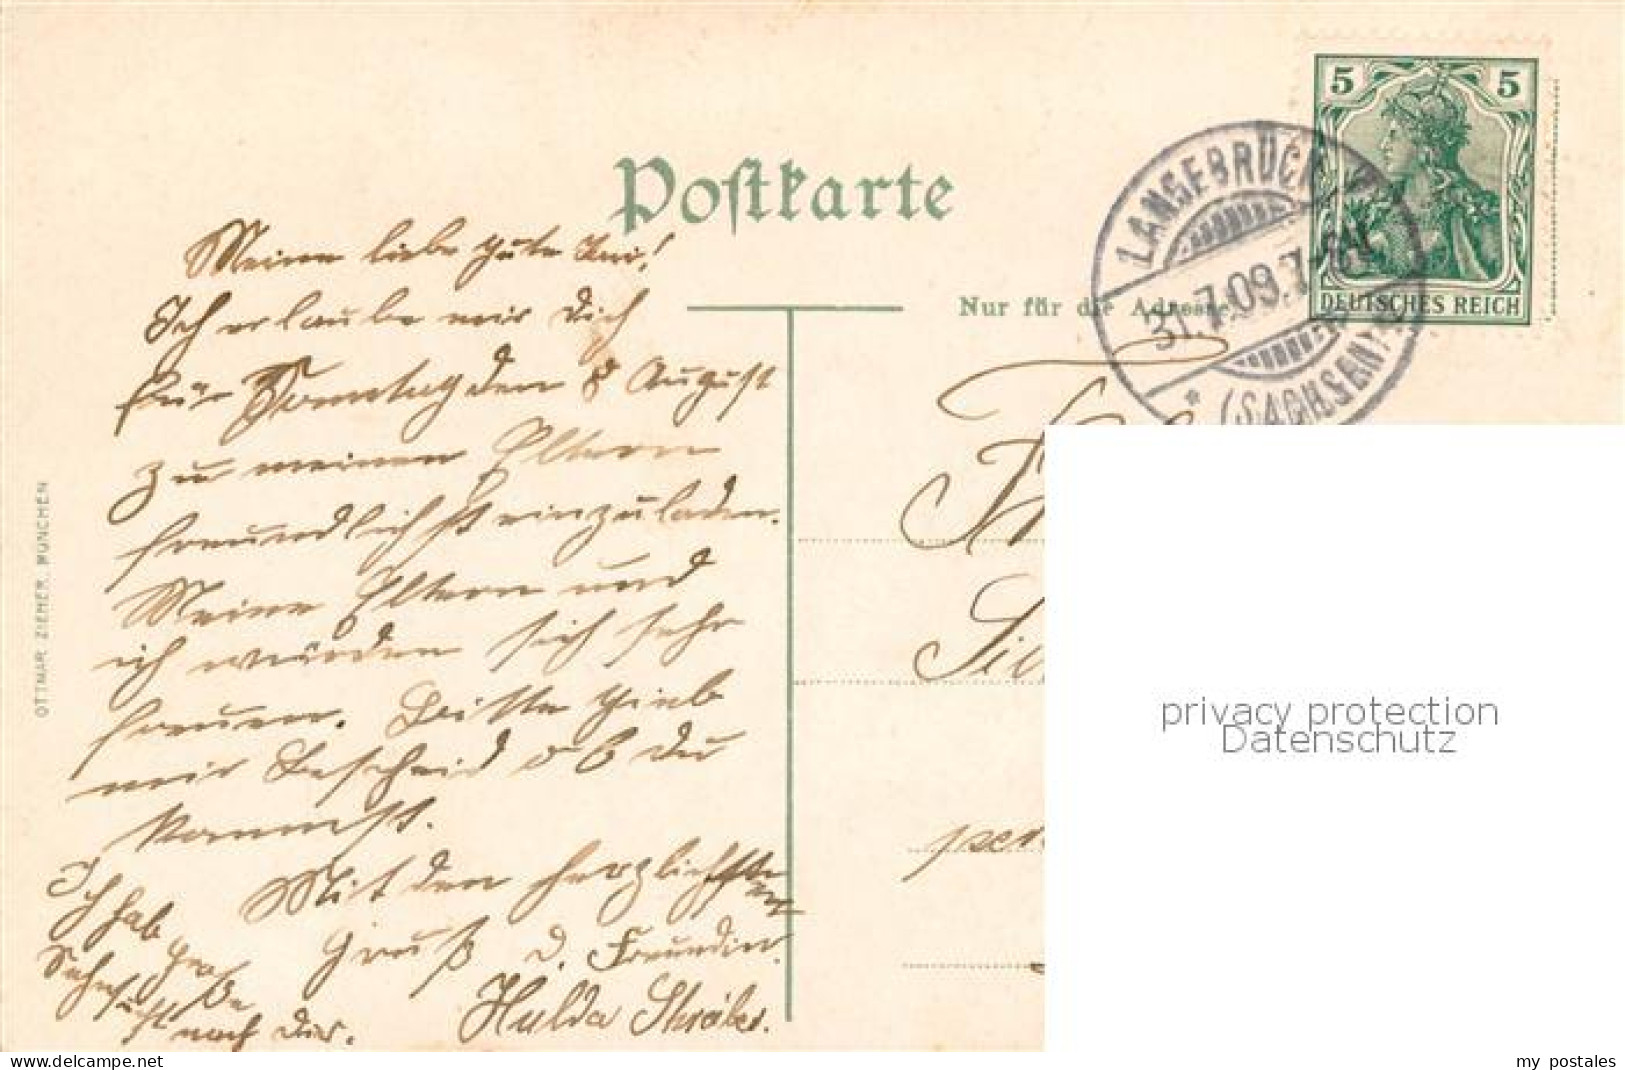 Postkarte
5 5
DEUTSCHES REICH
LANGEBRÜCK
31.7.09.7
* (SACHSEN)
Nur für die Adresse
Meine liebe gute
Ich erlaube mir dich
für Sonntag den 8 August
zu meinen Eltern
freundlichst einzuladen.
Meine Eltern und
ich würden sich sehr
freuen. Bitte gieb
mir Bescheid ob du
kommst.
Mit den herzlichsten
Gruß d. Freundin
Hulda
Ich hab
große
Sehnsucht
nach dir.
OTTMAR ZIEHER, MÜNCHEN
privacy protection
Datenschutz
delcampe.net
my_postales